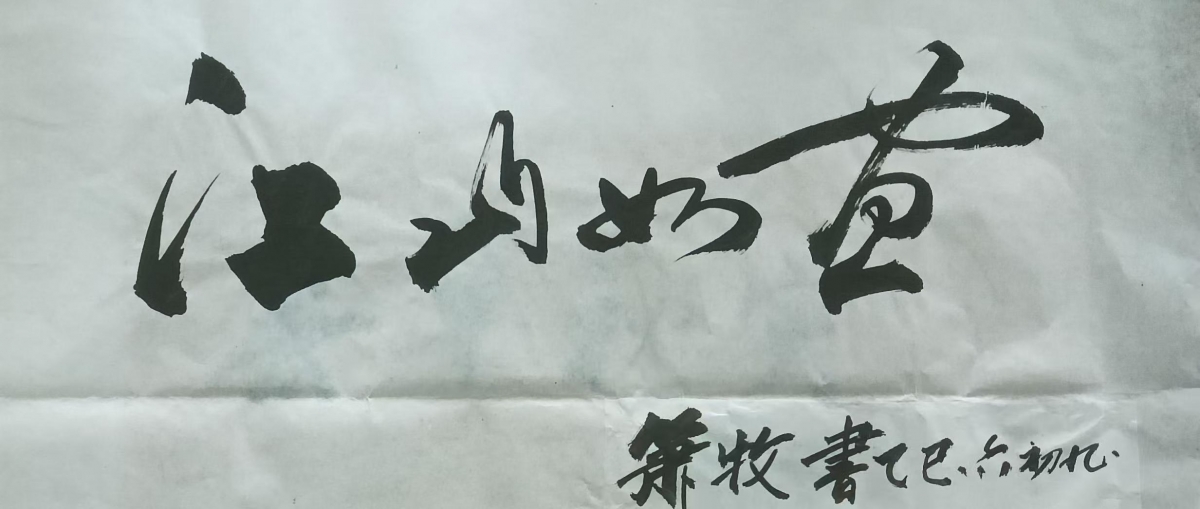 江山如画
萧牧書乙巳六初九